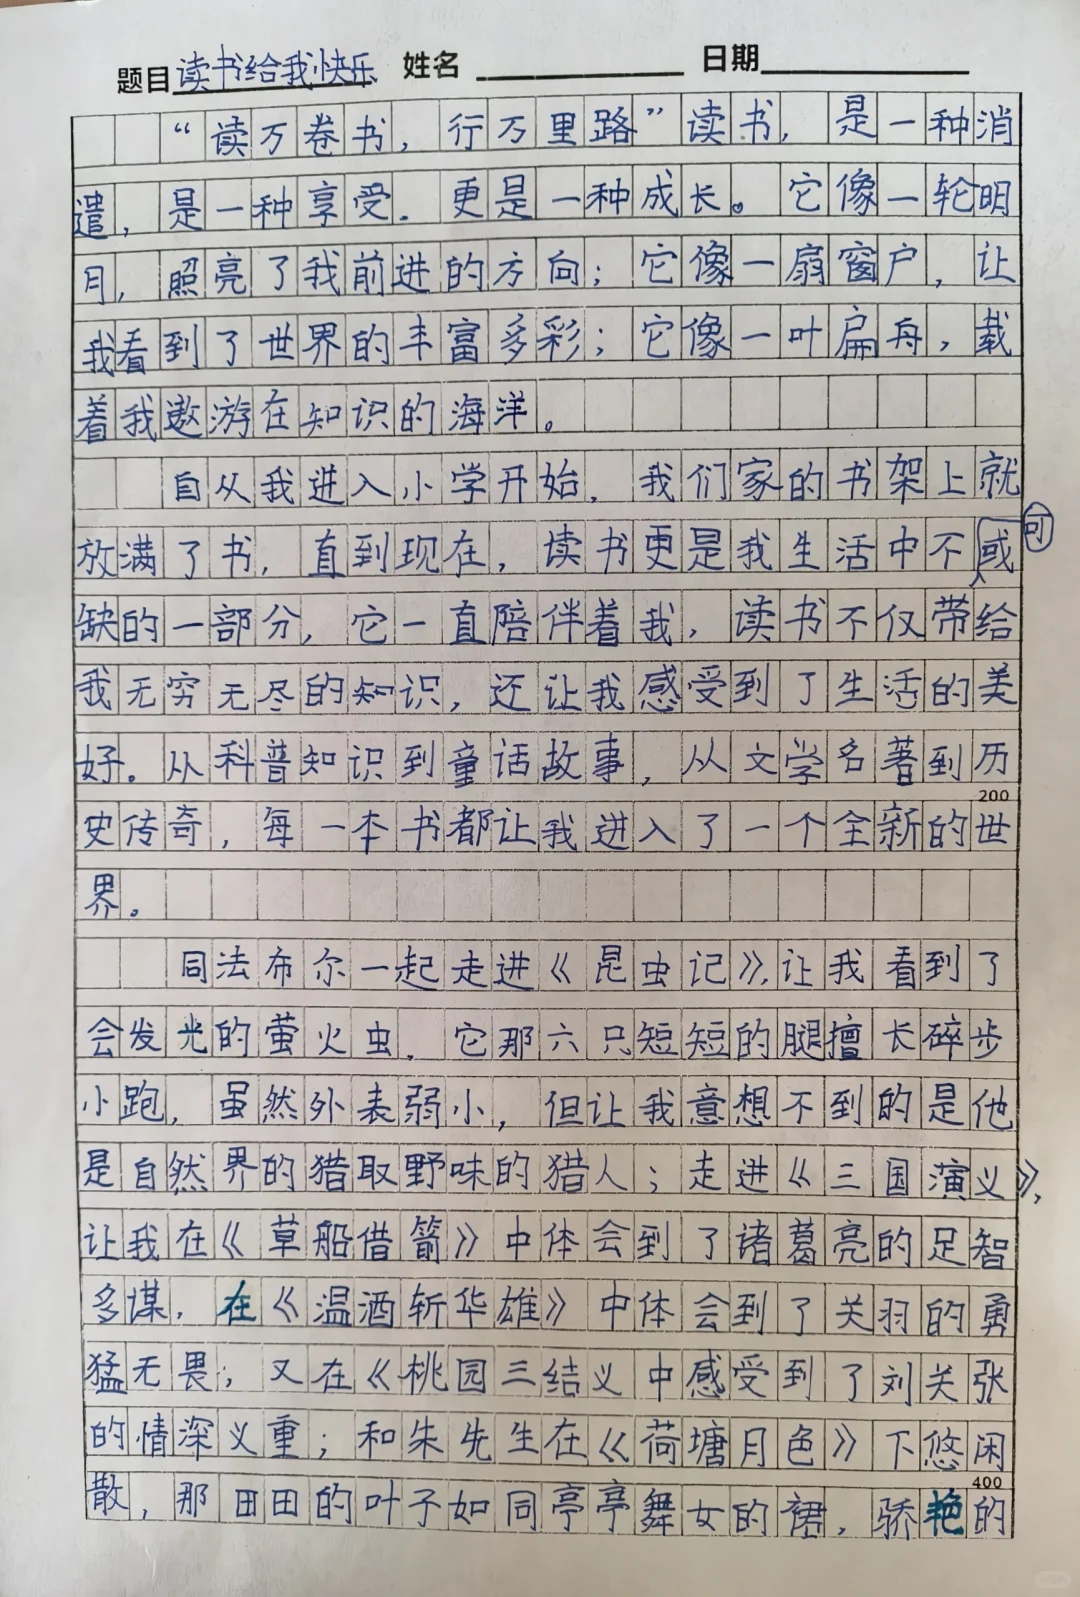 题目读书给我快乐 姓名 日期
“读万卷书，行万里路”读书，是一种消
遣，是一种享受．更是一种成长。它像一轮明
月，照亮了我前进的方向；它像一扇窗户，让
我看到了世界的丰富多彩；它像一叶扁舟，载
着我遨游在知识的海洋。
自从我进入小学开始，我们家的书架上就
放满了书，直到现在，读书更是我生活中不可或
缺的一部分，它一直陪伴着我，读书不仅带给
我无穷无尽的知识，还让我感受到了生活的美
好。从科普知识到童话故事，从文学名著到历
200
史传奇，每一本书都让我进入了一个全新的世
界。
同法布尔一起走进《昆虫记》，让我看到了
会发光的萤火虫．它那六只短短的腿擅长碎步
小跑，虽然外表弱小，但让我意想不到的是他
是自然界的猎取野味的猎人；走进《三国演义》，
让我在《草船借箭》中体会到了诸葛亮的足智
多谋．在《温酒斩华雄》中体会到了关羽的勇
猛无畏；又在《桃园三结义中感受到了刘关张
的情深义重；和朱先生在《荷塘月色》下悠闲
400
散，那田田的叶子如同亭亭舞女的裙，骄艳的